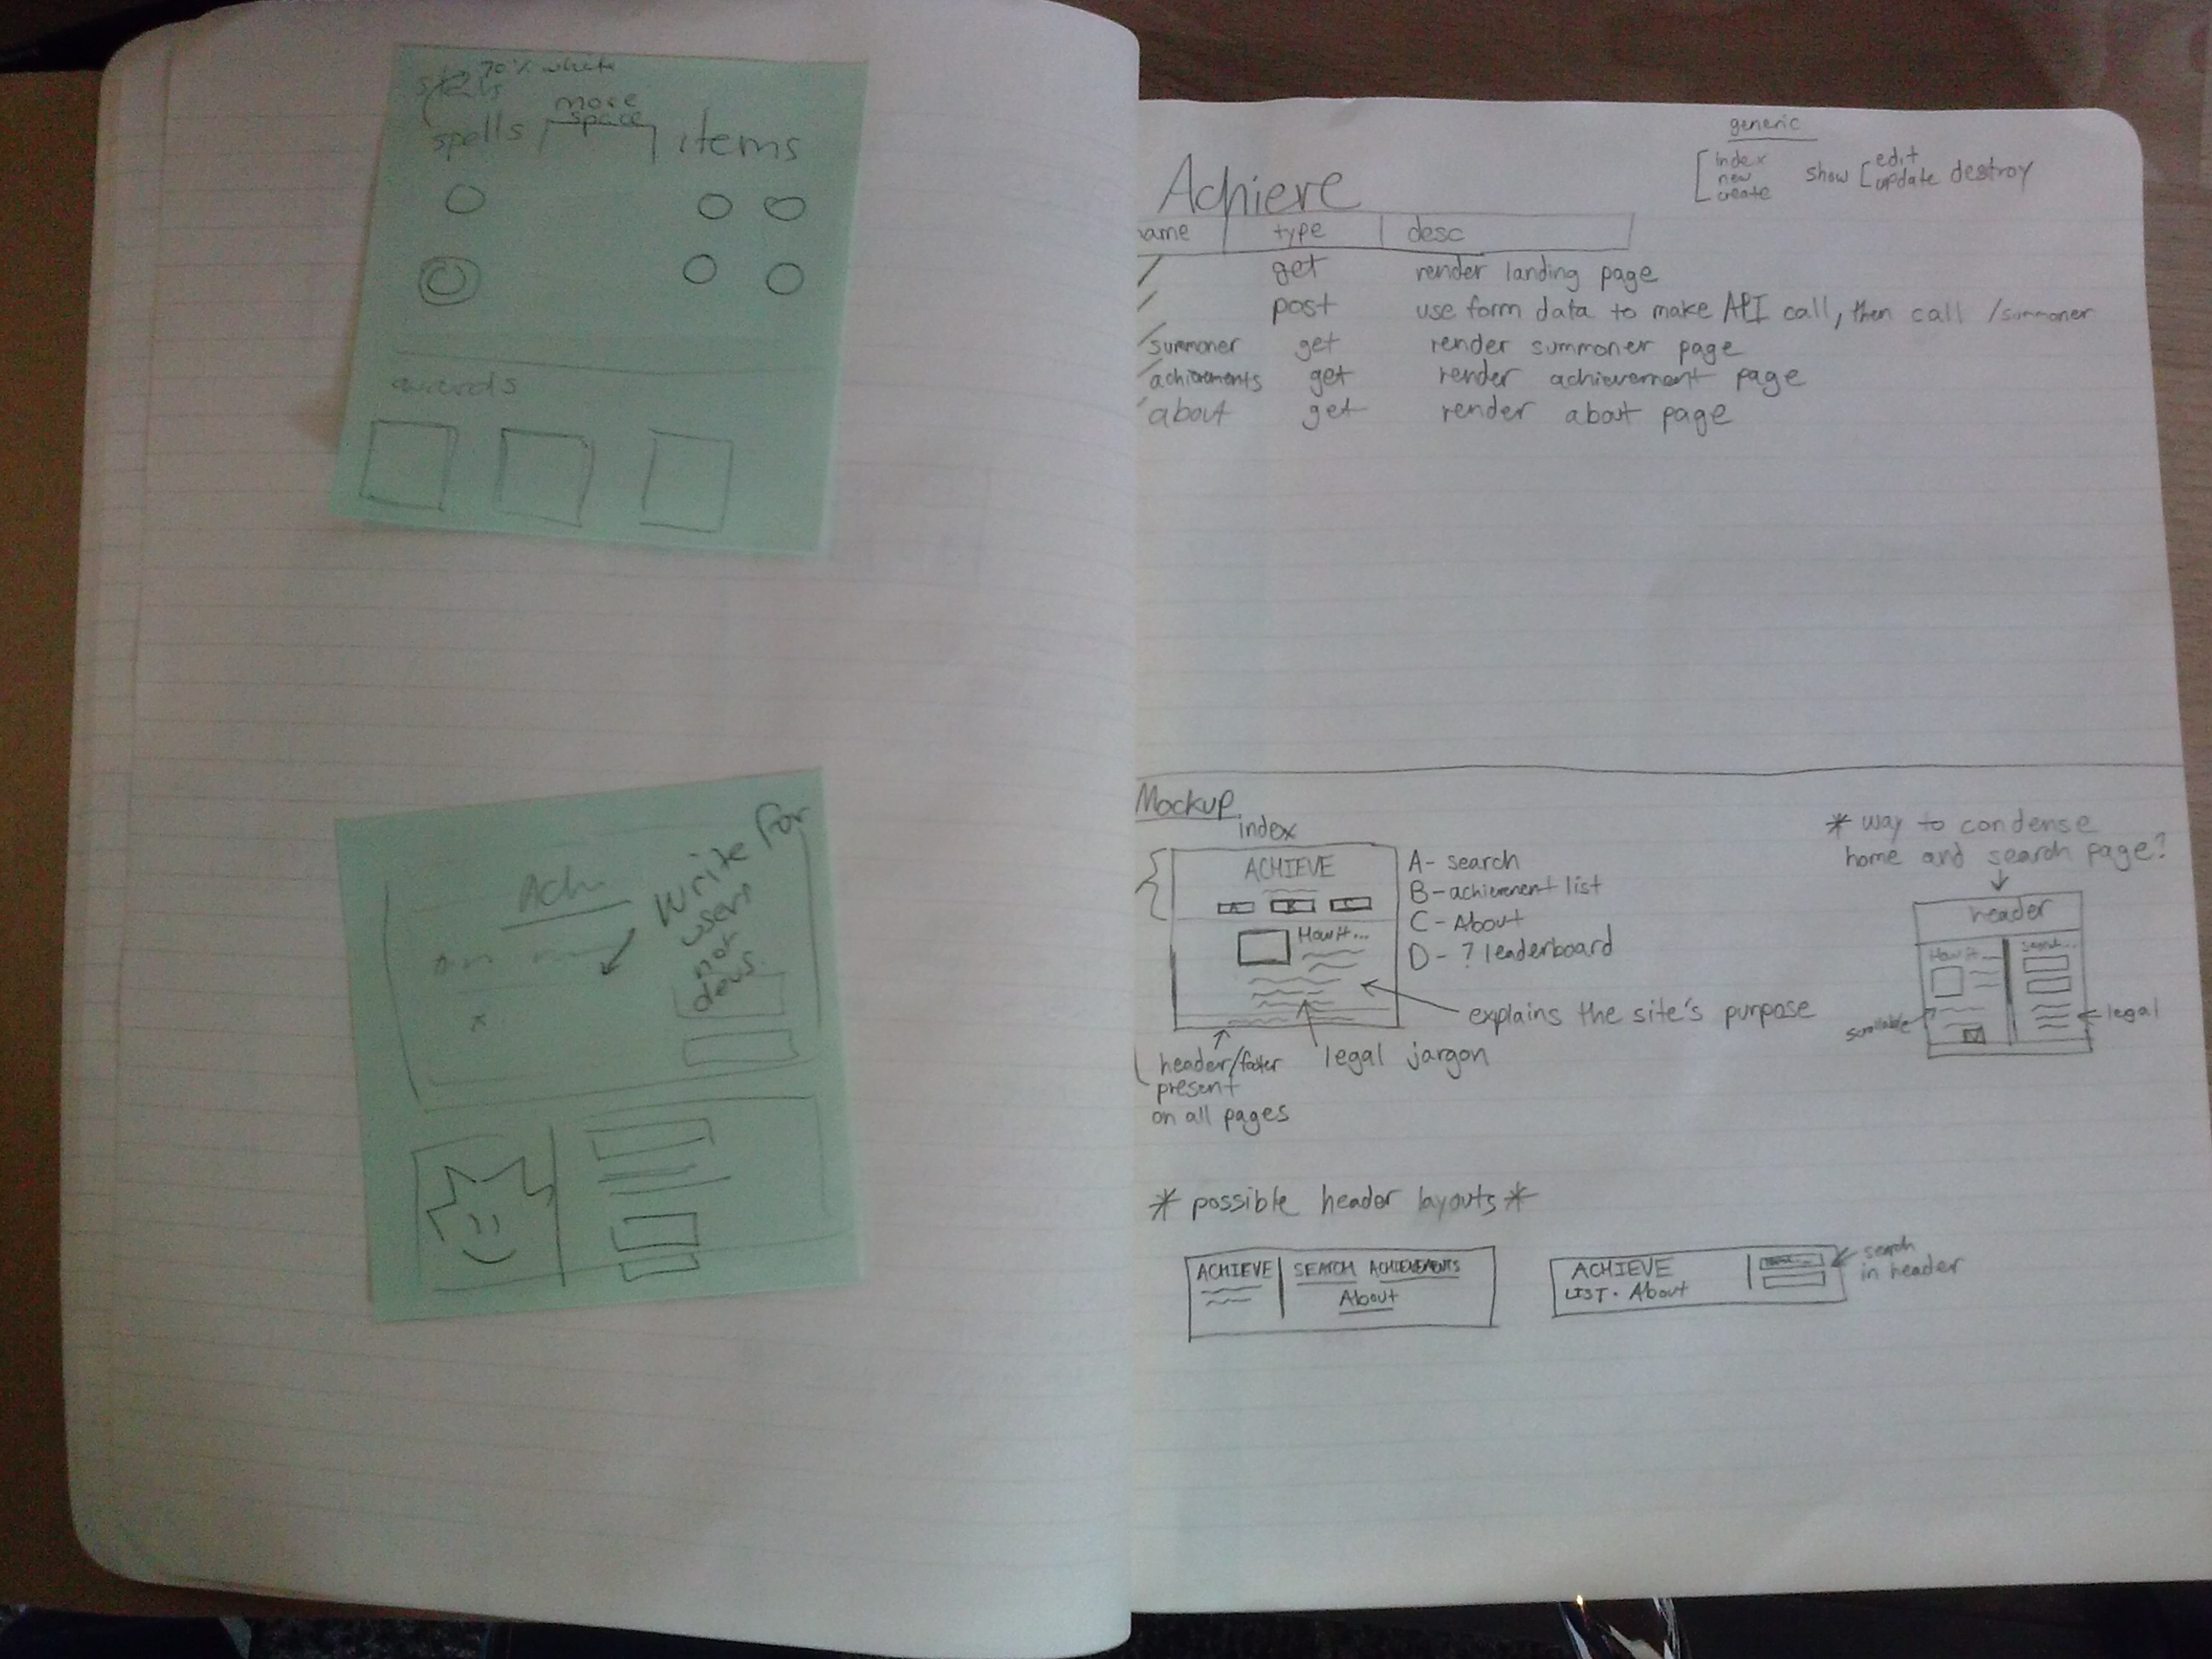 70% white
stats
more
space
spells
items
awards
Write for
users
not
devs.
Ach
generic
index
new
create
show
edit
update
destroy
Achieve
name type desc
/ get render landing page
/ post use form data to make API call, then call /summoner
/summoner get render summoner page
/achievements get render achievement page
/about get render about page
Mockup
index
ACHIEVE
A B C
How it...
A- search
B- achievement list
C- About
D- ? leaderboard
explains the site's purpose
legal jargon
header/footer
present
on all pages
* way to condense
home and search page?
header
How it...
search...
scrollable
legal
* possible header layouts *
ACHIEVE SEARCH ACHIEVEMENTS
About
ACHIEVE
LIST · About
search
in header